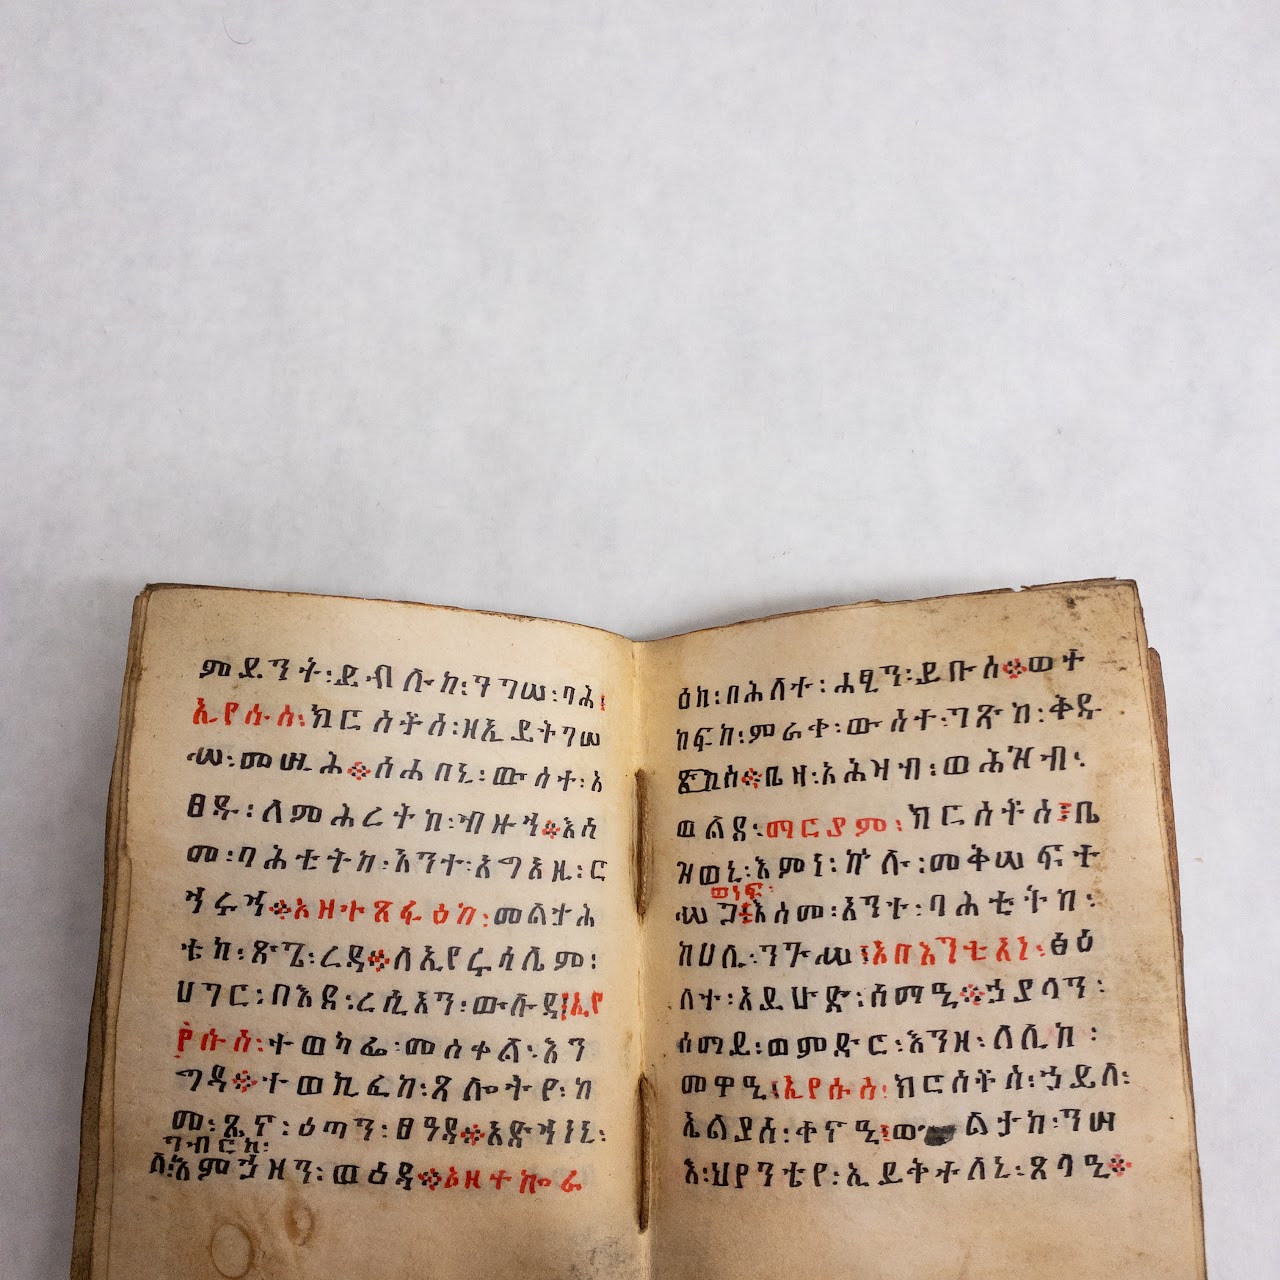 ምደንት፡ይብሉከ፡ንግሠ፡ባሕ፤
ኢየሱስ፡ክርስቶስ፡ዘኢይትገሠ
ሠ፡መሢሕ፨ሰሐበኒ፡ውስተ፡አ
ፀዱ፡ለምሕረትከ፡ኀዙኅ፨እስ
መ፡ባሕቲትከ፡አንተ፡እግአዚ፡ር
ኅሩኅ፨አዘተጸፋዕከ፡መልታሕ
ቴከ፡ጽጌ፡ረዳ፨ለኢየሩሳሌም፡
ሀገር፡በእደ፡ረሲአን፡ውሉዳ፤ኢየ
የሱስ፡ተወካፌ፡መስቀል፡እን
ግዳ፨ተወኪፈከ፡ጸሎትየ፡ከ
መ፡ጼና፡ዕጣን፡ፀዓዳ፨አድኅነኒ፡
ገብርከ፡
ለ፡እምኃዘን፡ወዕዳ፨አዘተኰራ
ዕከ፡በሕለተ፡ሐፂን፡ይቡስ፨ወተ
ከፍከ፡ምራቀ፡ውስተ፡ገጽከ፡ቅዱ
ስ፨ቤዘ፡አሕዛብ፡ወሕዝብ፡
ወልደ፡ማርያም፡ክርስቶስ፤ቤ
ዝወኒ፡እምነ፡ኵሉ፡መቅሠፍተ
ወነፍ፡
ሠጋ፤እስመ፡አንተ፡ባሕቲትከ፡
ከሀሊ፡ንጉሠ፤አበአንቲአነ፡ፅፅ
ለተ፡አይሁድ፡ሰማዒ፨ኃያላን፡
ሰማይ፡ወምድር፡እንዘ፡ለሊከ፡
መዋዒ፤ኢየሱስ፡ክርስቶስ፡ኃይለ፡
ኤልያስ፡ቀናዒ፤ወልታከ፡ንሠ
እ፡ህየንቴየ፡ኢይቅተለኒ፡ጸላዒ፨